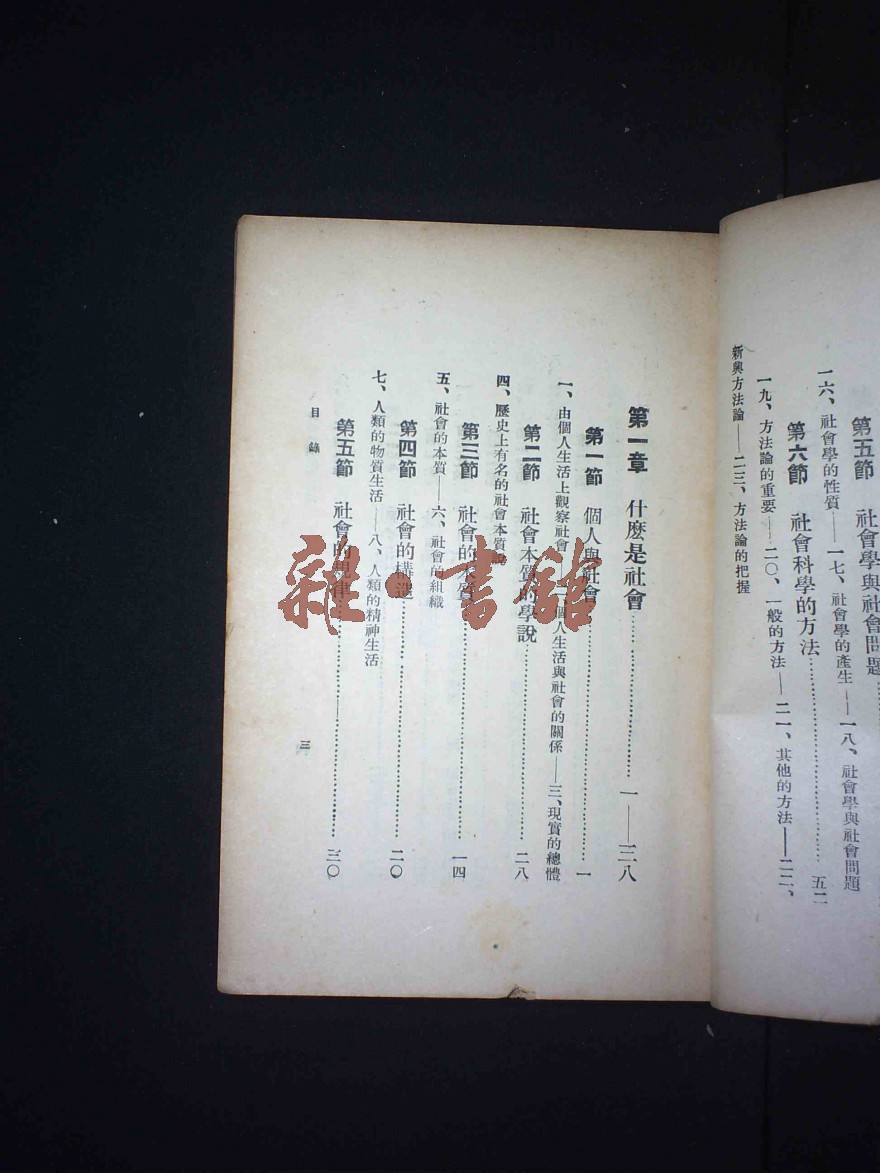 第五節 社會學與社會問題……
一六、社會學的性質——一七、社會學的產生——一八、社會學與社會問題
第六節 社會科學的方法……五二
一九、方法論的重要——二〇、一般的方法——二一、其他的方法——二二、
新興方法論——二三、方法論的把握
第一章 什麼是社會……一——三八
第一節 個人與社會……一
一、由個人生活上觀察社會 個人生活與社會的關係——三、現實的總體
第二節 社會本質的學說……二八
四、歷史上有名的社會本質說
第三節 社會的本質……一四
五、社會的本質——六、社會的組織
第四節 社會的構造……二〇
七、人類的物質生活——八、人類的精神生活
第五節 社會的規律……三〇
目錄 三
雜·書館